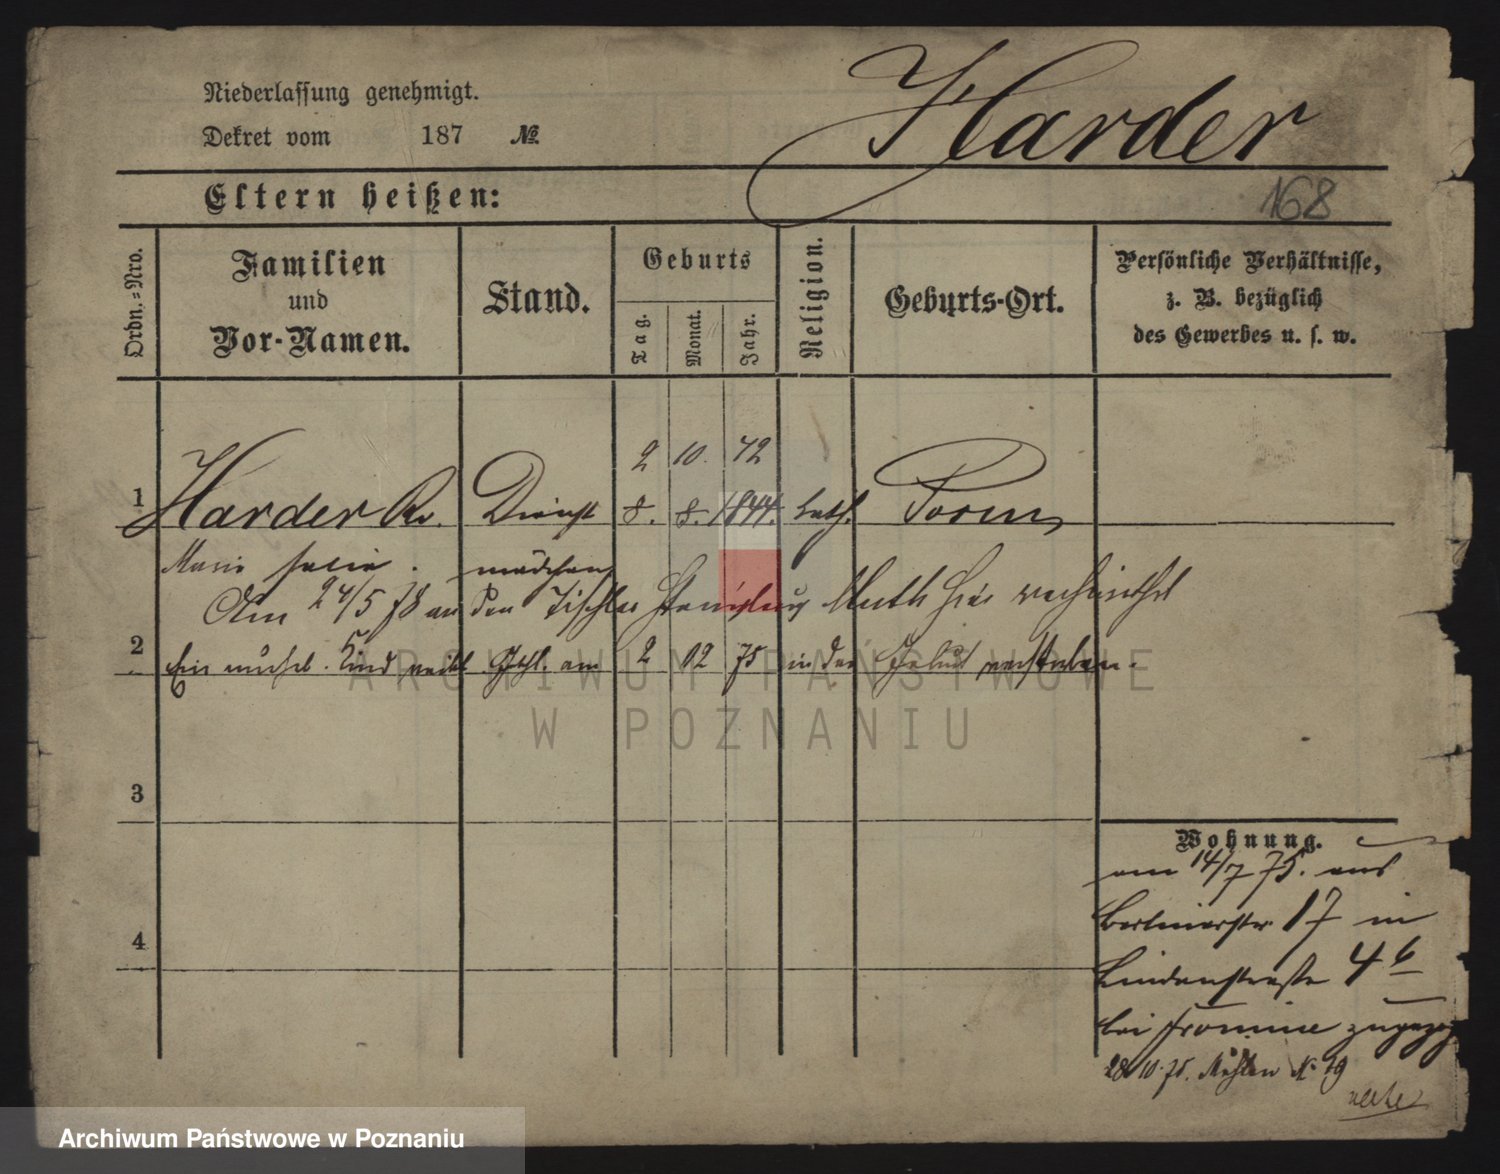 Niederlassung genehmigt.
Dekret vom 187 №
Harder
Eltern heißen:
168
Ordn.=Nro.
Familien
und
Vor-Namen.
Stand.
Geburts
Tag.
Monat.
Jahr.
Religion.
Geburts-Ort.
Persönliche Verhältnisse,
z. B. bezüglich
des Gewerbes u. s. w.
2 10. 72
1 Harder Dienst 8. 8. 1844. kath. Posen
Marie mädchen
Am 24/5 78 an den Tischler Stanislaus hier verheirathet
2
Ein unehel. Kind weibl. Gschl. am 2 12 75 in der Geburt verstorben.
ARCHIWUM PAŃSTWOWE
W POZNANIU
3
4
Wohnung.
am 14/7 75. aus
Berlinerstr 17 in
Lindenstraße 4 b
bei Fromm
28 10. 75. Mühlen № 19
Archiwum Państwowe w Poznaniu